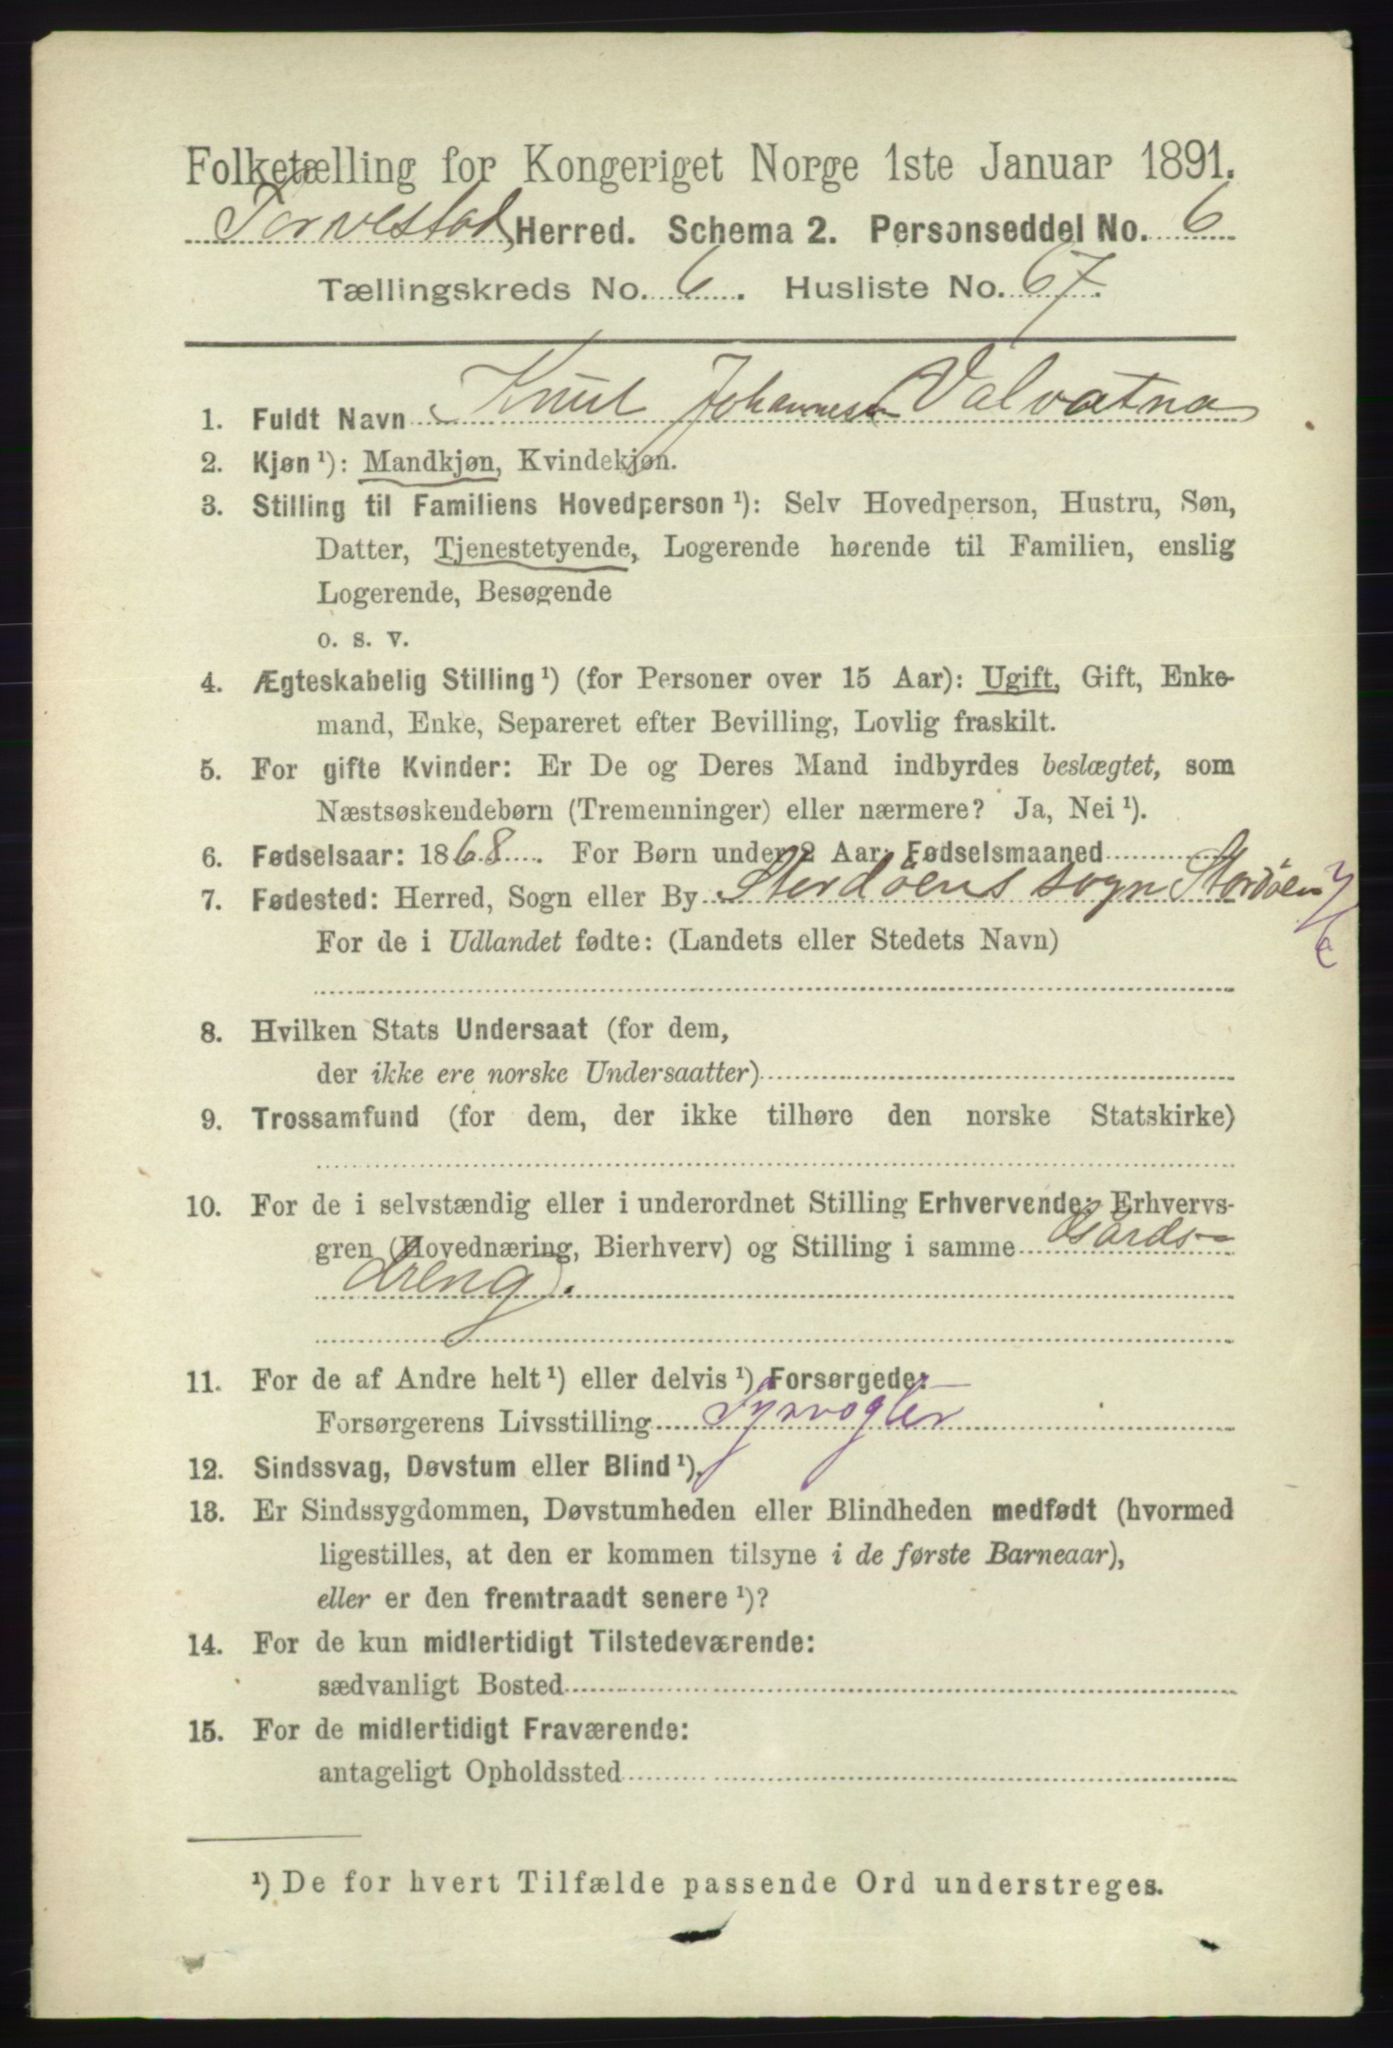 Folketælling for Kongeriget Norge 1ste Januar 1891.
Torvestad Herred. Schema 2. Personseddel No. 6
Tællingskreds No. 6. Husliste No. 67.
1. Fuldt Navn Knut Johannesen Valvatna
2. Kjøn ¹): Mandkjøn, Kvindekjøn.
3. Stilling til Familiens Hovedperson ¹): Selv Hovedperson, Hustru, Søn,
Datter, Tjenestetyende, Logerende hørende til Familien, enslig
Logerende, Besøgende
o. s. v.
4. Ægteskabelig Stilling ¹) (for Personer over 15 Aar): Ugift, Gift, Enke-
mand, Enke, Separeret efter Bevilling, Lovlig fraskilt.
5. For gifte Kvinder: Er De og Deres Mand indbyrdes beslægtet, som
Næstsøskendebørn (Tremenninger) eller nærmere? Ja, Nei ¹).
6. Fødselsaar: 1868. For Børn under 2 Aar, Fødselsmaaned
7. Fødested: Herred, Sogn eller By Stordöens sogn Stordöen
For de i Udlandet fødte: (Landets eller Stedets Navn)
8. Hvilken Stats Undersaat (for dem,
der ikke ere norske Undersaatter)
9. Trossamfund (for dem, der ikke tilhøre den norske Statskirke)
10. For de i selvstændig eller i underordnet Stilling Erhvervende: Erhvervs-
gren (Hovednæring, Bierhverv) og Stilling i samme Gårds-
dreng.
11. For de af Andre helt ¹) eller delvis ¹) Forsørgede:
Forsørgerens Livsstilling
12. Sindssvag, Døvstum eller Blind ¹).
13. Er Sindssygdommen, Døvstumheden eller Blindheden medfødt (hvormed
ligestilles, at den er kommen tilsyne i de første Barneaar),
eller er den fremtraadt senere ¹)?
14. For de kun midlertidigt Tilstedeværende:
sædvanligt Bosted
15. For de midlertidigt Fraværende:
antageligt Opholdssted
¹) De for hvert Tilfælde passende Ord understreges.